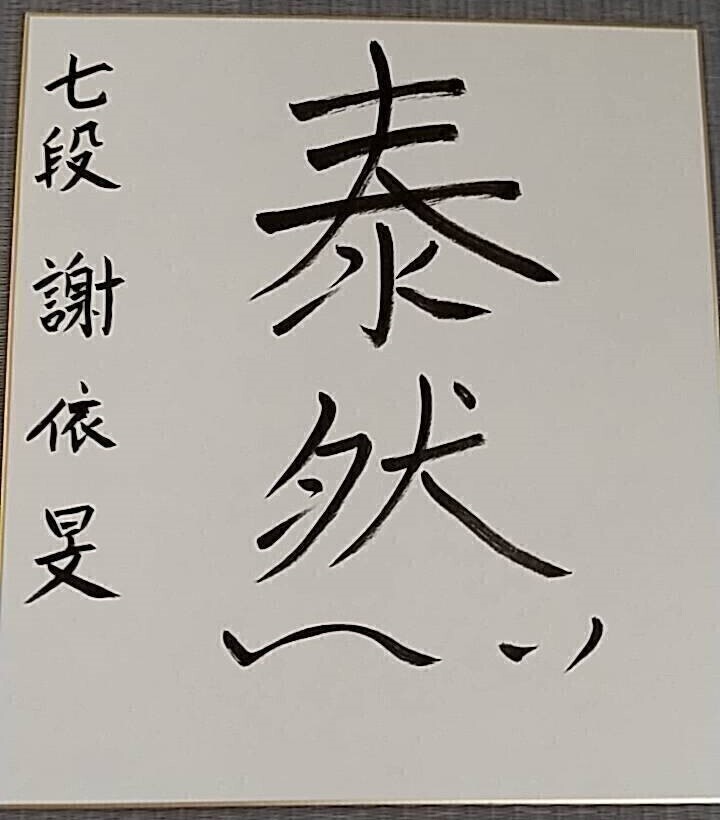 泰然
七段 謝依旻